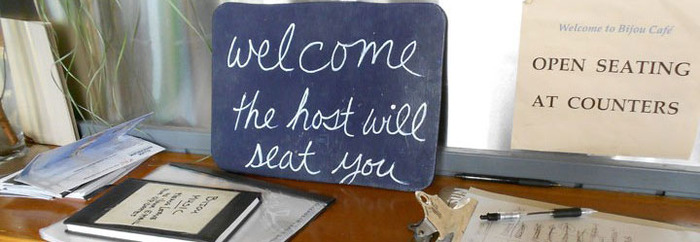 welcome
the host will
seat you
Welcome to Bijou Café
OPEN SEATING
AT COUNTERS
BIJOU
MUSIC